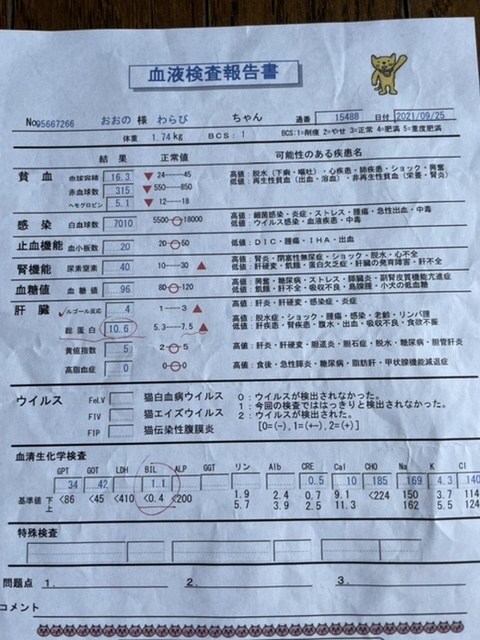 血液検査報告書
No95667266 おおの 様 わらび ちゃん 通番 15488 日付 2021/09/25
体重 1.74kg BCS: 1 BCS:1=削痩 2=やせ 3=正常 4=肥満 5=重度肥満
結果 正常値 可能性のある疾患名
貧血 血球容積 16.3 ▼ 24——45 高値: 脱水(下痢・嘔吐)・心疾患・肺疾患・ショック・興奮
赤血球数 315 ▼ 550—850 低値: 再生性貧血(出血・溶血)・非再生性貧血(栄養・腎炎)
ヘモグロビン 5.1 ▼ 12——18
感染 白血球数 7010 5500—○—18000 高値: 細菌感染・炎症・ストレス・腫瘍・急性出血・中毒
低値: ウイルス感染・血液疾患・中毒
止血機能 血小板数 20 20—○—50 低値: DIC・腫瘍・IHA・出血
腎機能 尿素窒素 40 10——30 ▲ 高値: 腎炎・閉塞性無尿症・ショック・脱水・心不全
低値: 肝硬変・飢餓・蛋白欠乏症・肝臓の発育障害・肝不全
血糖値 血糖値 96 80—○—120 高値: 興奮・糖尿病・ストレス・膵臓炎・副腎皮質機能亢進症
低値: 飢餓・肝不全・吸収不良・島腺腫・小犬の低血糖
肝臓 ルゴール反応 4 1——3 ▲ 高値: 肝炎・肝硬変・感染症・炎症
総蛋白 10.6 5.3—7.5 ▲ 高値: 脱水症・ショック・腫瘍・感染・老齢・リンパ腫
低値: 肝疾患・腎疾患・腹水・出血・吸収不良・食欲不振
黄疸指数 5 2—○—5 高値: 肝炎・肝硬変・胆道炎・胆石症・脱水・糖尿病・胆管肝炎
高脂血症 0 0—○—0 高値: 食後・急性膵炎・糖尿病・脂肪肝・甲状腺機能減退症
ウイルス FeLV 猫白血病ウイルス 0:ウイルスが検出されなかった。
FIV 猫エイズウイルス 1:今回の検査でははっきりと検出されなかった。
FIP 猫伝染性腹膜炎 2:ウイルスが検出された。
[0=(-), 1=(+-), 2=(+)]
血清生化学検査
GPT GOT LDH BIL ALP GGT リン Alb CRE Cal CHO Na K Cl
34 42 1.1 0.5 10 185 169 4.3 140
基準値 下 <86 <45 <410 <0.4 <200 1.9 2.4 0.7 9.1 <224 150 3.7 114
上 5.7 3.9 2.5 11.3 162 5.5 124
特殊検査
問題点 1. 2. 3.
コメント